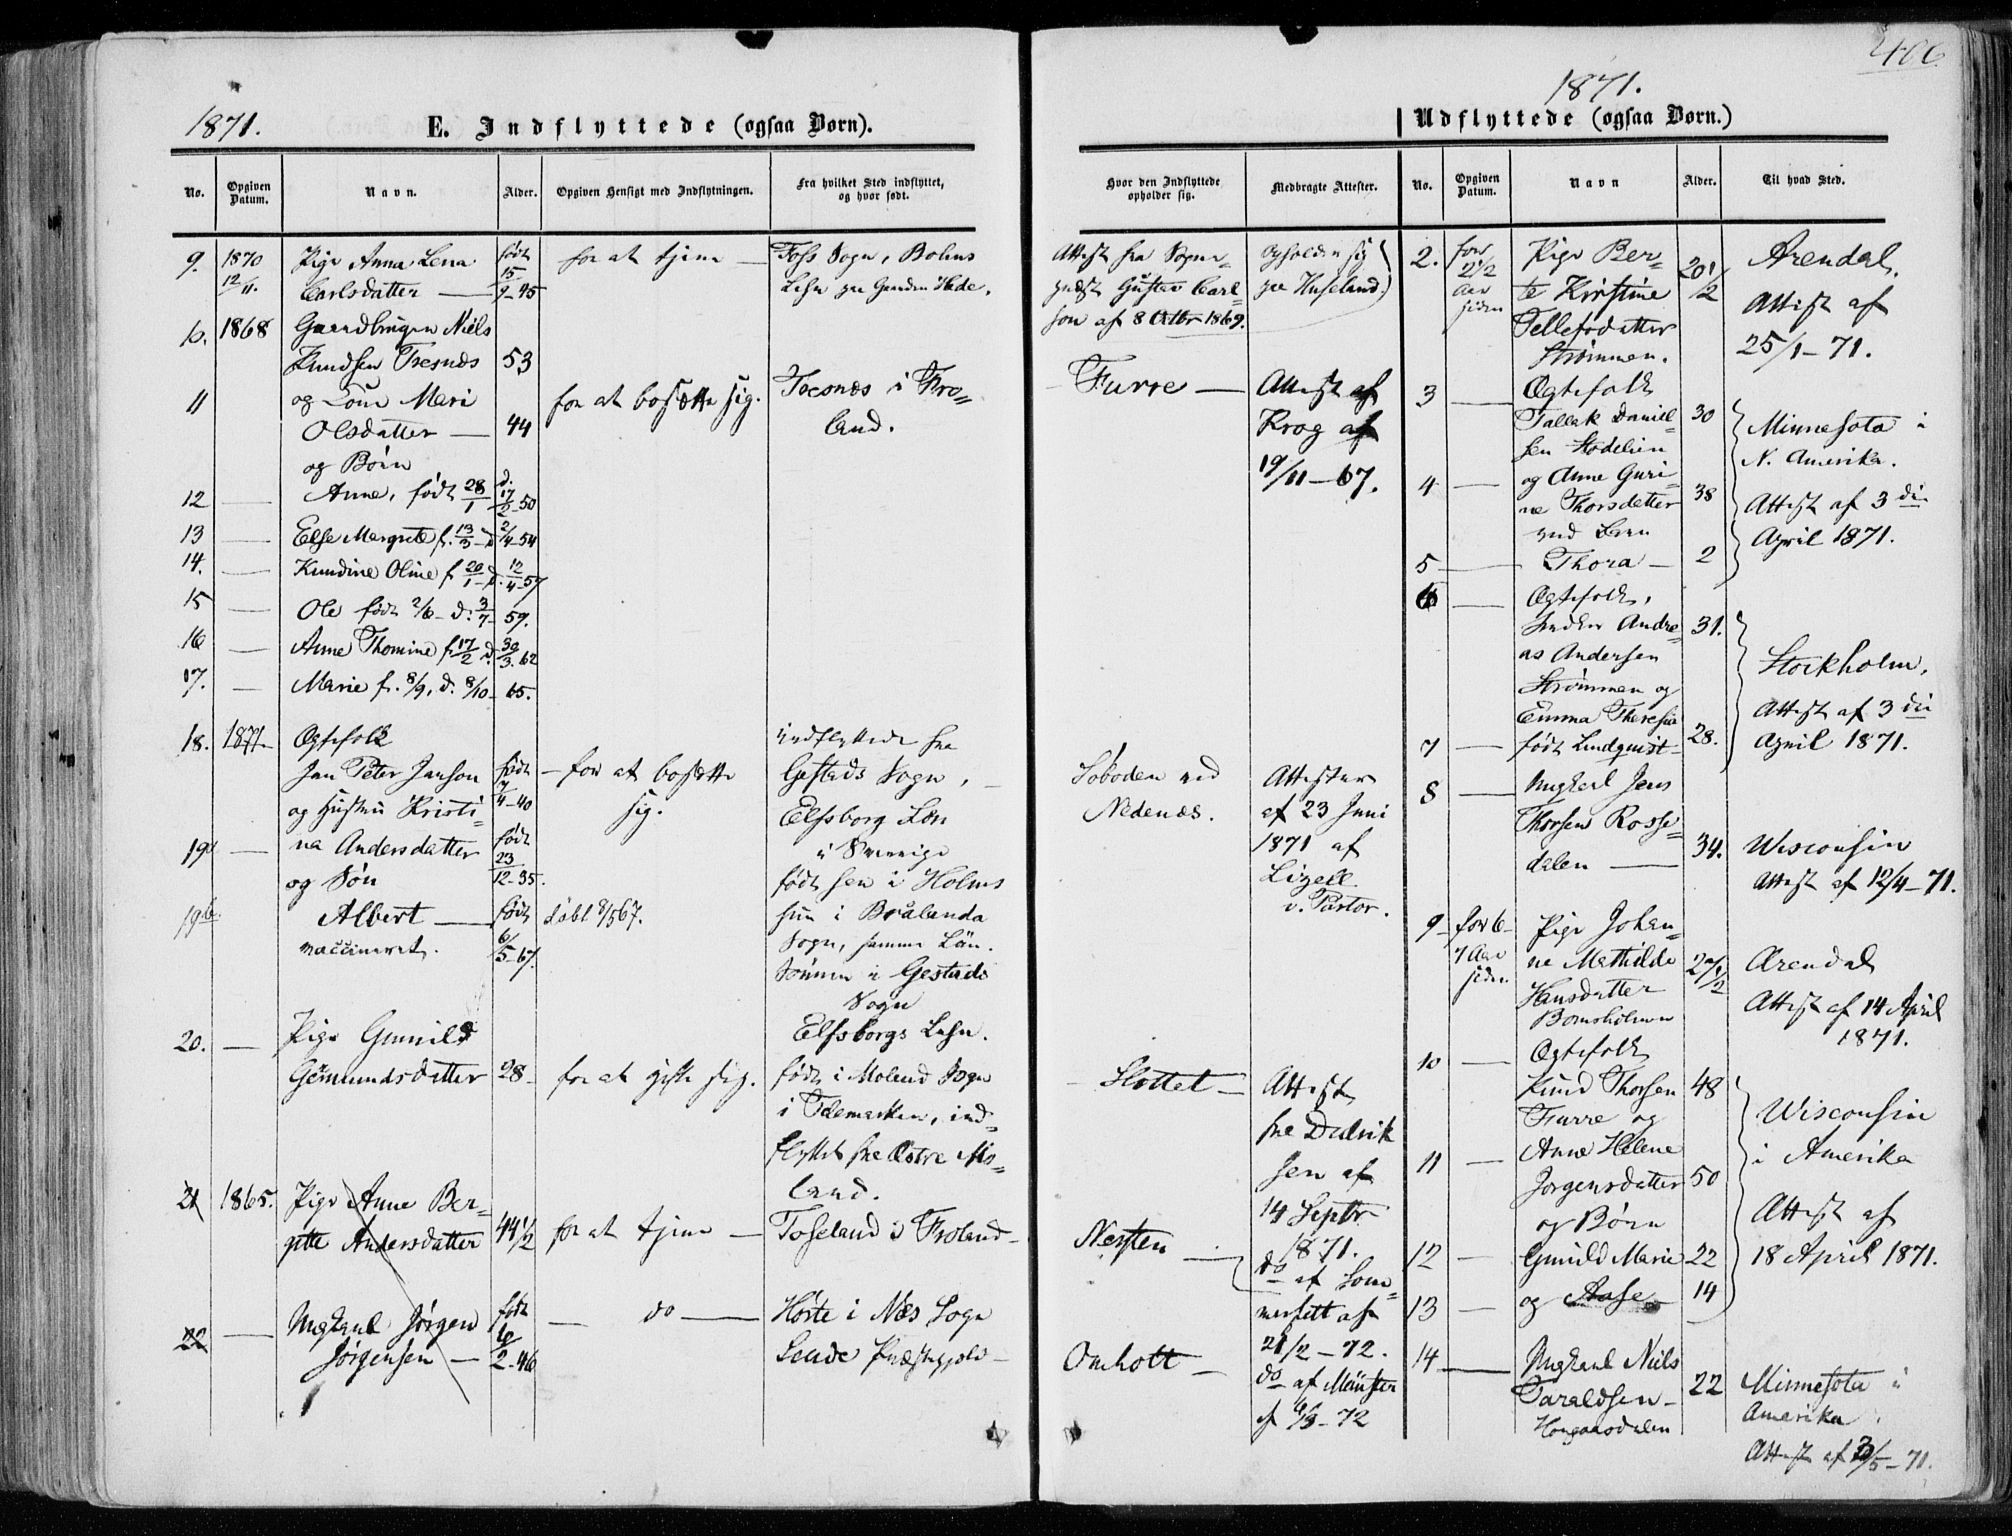 406
1871.
1871.
E. Indflyttede (ogsaa Børn).
Udflyttede (ogsaa Børn.)
No.
Opgiven Datum.
Navn.
Alder.
Opgiven Hensigt med Indflytningen.
Fra hvilket Sted indflyttet, og hvor født.
Hvor den Indflyttede opholder sig.
Medbragte Attester.
No.
Opgiven Datum.
Navn
Alder.
Til hvad Sted.
9. 1870 Pige Anna Lena født for at tjene — Foss Sogn, Bohus
12/11. Carlsdatter — 15/9-45 Lehn paa Gaarden Hede.
Attest fra Sogne-
præst Gustav Carl-
son af 8 Octbr 1869.
Opholder sig
paa Huseland.)
10. 1868 Gaardbruger Niels
Knudsen Tvesnæs 53
11 og Kone Mari for at bosætte sig. i Fro-
Olsdatter — 44 land.
Furre — Attest af
Krog af
19/11-67.
og Børn
12 — Anne, født 28/1 d. 17/2-50
13 — Else Margrete f. 13/3 d. 2/4-54
14. — Knudine Oline f. 20/1 d. 12/4-57
15 — Ole født 2/6 d. 3/7-59.
16 — Anne Thomine f. 17/2 d. 30/3.62
17. — Marie f. 8/9, d. 8/10-65.
18. 1871 Ægtefolk indflyttede fra
Jan Peter Janson født — for at bosætte Gestads Sogn, —
og Hustru Kristi- 7/4-40 sig. Elfsborg Län
19a — na Andersdatter født i Sverrige
og Søn 23/12-35. født han i Holms
19b. Albert — født døbt 8/5 67. hun i Brålanda
vaccineret. 6/5-67. Sogn, samme Län.
Sønnen i Gestads
Sogn
Elfsborgs Lehn.
Søboden ved
Nedenæs.
Attester
af 23 Juni
1871 af
Lizell
v. Pastor.
20. — Pige Gunild
Gjermundsdatter 28 — for at gifte sig. født i Moland Sogn
i Telemarken, ind-
flyttet fra Østre Mo-
land.
— Slottet — Attest
fra Didrik
sen af
14 Septbr
1871.
21 1865. Pige Anne Ber-
gitte Andersdatter 44 1/2 for at tjene — Toseland i Froland —
Nersten — do af Som-
merfelt af
21/2-72.
22 — Ungkarl Jørgen født — do — Hørte i Næs Sogn
Jørgensen — 6/2-46 Præstegjeld —
Omholt — do af Münster
af 9/3-72
2. for Pige Ber- 20 1/2 Arendal.
2 1/2 te Kirstine Attest af
Aar Tellefsdatter 25/1-71.
siden Strømmen.
3 — Ægtefolk
Tallak Daniel- 30 Minnesota i
sen Stodelien N. Amerika.
4 — og Anne Guri-
ne Thorsdatter 38 Attest af 3 die
med Barn April 1871.
5 — Thora — 2
6 — Ægtefolk,
Andre- 31.
as Andersen
Strømmen og Stockholm.
Emma Theresia Attest af 3 die
7 — født Lindquist — 28. April 1871.
8 — Ungkarl Jens
Thorsen Rosse-
dalen — 34. Wisconsin
Attest af 12/4-71.
9 — for 6- Pige Johan-
7 Aar ne Mathilde 27 1/2 Arendal
siden. Hansdatter Attest af 14 April
Bomsholmen 1871.
10 — Ægtefolk
Knud Thorsen 48
Furre og Wisconsin
11 — Anne Helene i Amerika
Jørgensdatter 50
og Børn Attest af
12 — Gunild Marie 22 18 April 1871.
13 — og Aase — 14
14 — Ungkarl Niels
Taraldsen — 22 Minnesota i
Amerika
Attest af 3/5-71.